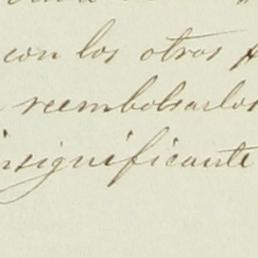 con los otros
reembolsarlos
insignificante